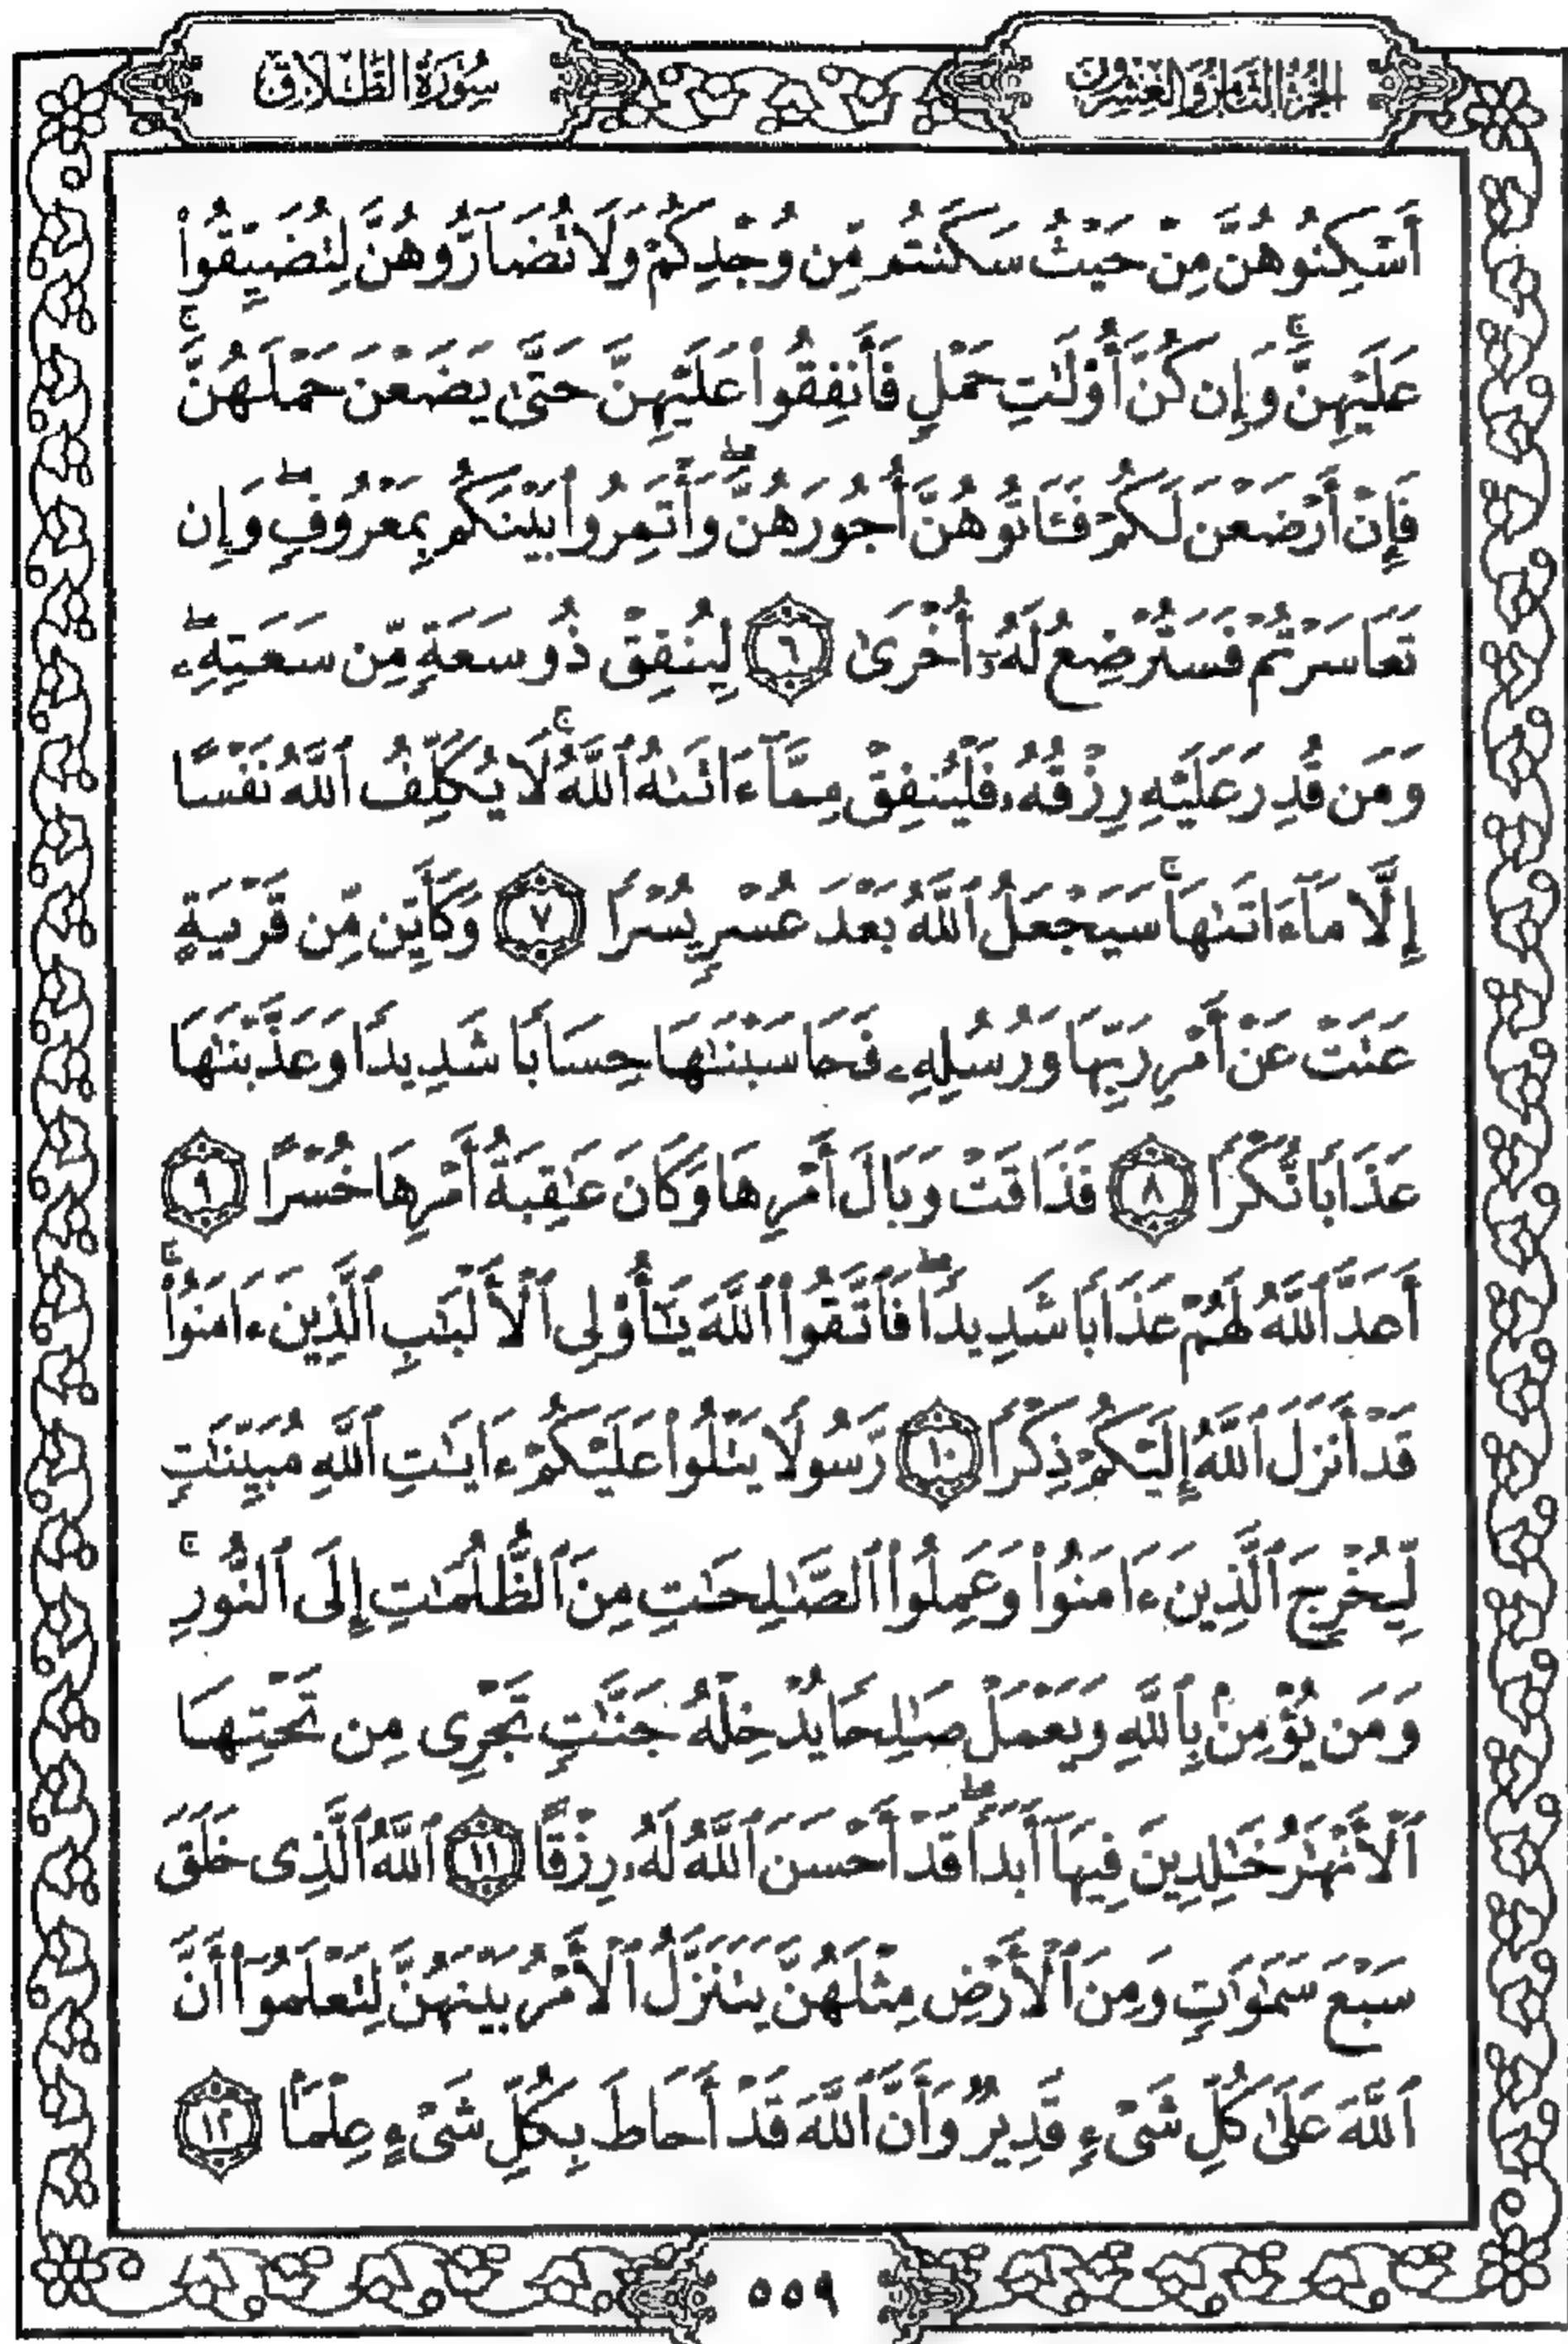 الجزء الثامن والعشرون
سُورَةُ الطَّلَاقِ
أَسْكِنُوهُنَّ مِنْ حَيْثُ سَكَنتُم مِّن وُجْدِكُمْ وَلَا تُضَآرُّوهُنَّ لِتُضَيِّقُوا۟
عَلَيْهِنَّ ۚ وَإِن كُنَّ أُو۟لَٰتِ حَمْلٍ فَأَنفِقُوا۟ عَلَيْهِنَّ حَتَّىٰ يَضَعْنَ حَمْلَهُنَّ ۚ
فَإِنْ أَرْضَعْنَ لَكُمْ فَـَٔاتُوهُنَّ أُجُورَهُنَّ ۖ وَأْتَمِرُوا۟ بَيْنَكُم بِمَعْرُوفٍ ۖ وَإِن
تَعَاسَرْتُمْ فَسَتُرْضِعُ لَهُۥٓ أُخْرَىٰ ٦ لِيُنفِقْ ذُو سَعَةٍ مِّن سَعَتِهِۦ ۖ
وَمَن قُدِرَ عَلَيْهِ رِزْقُهُۥ فَلْيُنفِقْ مِمَّآ ءَاتَىٰهُ ٱللَّهُ ۚ لَا يُكَلِّفُ ٱللَّهُ نَفْسًا
إِلَّا مَآ ءَاتَىٰهَا ۚ سَيَجْعَلُ ٱللَّهُ بَعْدَ عُسْرٍ يُسْرًا ٧ وَكَأَيِّن مِّن قَرْيَةٍ
عَتَتْ عَنْ أَمْرِ رَبِّهَا وَرُسُلِهِۦ فَحَاسَبْنَٰهَا حِسَابًا شَدِيدًا وَعَذَّبْنَٰهَا
عَذَابًا نُّكْرًا ٨ فَذَاقَتْ وَبَالَ أَمْرِهَا وَكَانَ عَٰقِبَةُ أَمْرِهَا خُسْرًا ٩
أَعَدَّ ٱللَّهُ لَهُمْ عَذَابًا شَدِيدًا ۖ فَٱتَّقُوا۟ ٱللَّهَ يَٰٓأُو۟لِى ٱلْأَلْبَٰبِ ٱلَّذِينَ ءَامَنُوا۟ ۚ
قَدْ أَنزَلَ ٱللَّهُ إِلَيْكُمْ ذِكْرًا ١٠ رَّسُولًا يَتْلُوا۟ عَلَيْكُمْ ءَايَٰتِ ٱللَّهِ مُبَيِّنَٰتٍ
لِّيُخْرِجَ ٱلَّذِينَ ءَامَنُوا۟ وَعَمِلُوا۟ ٱلصَّٰلِحَٰتِ مِنَ ٱلظُّلُمَٰتِ إِلَى ٱلنُّورِ ۚ
وَمَن يُؤْمِنۢ بِٱللَّهِ وَيَعْمَلْ صَٰلِحًا يُدْخِلْهُ جَنَّٰتٍ تَجْرِى مِن تَحْتِهَا
ٱلْأَنْهَٰرُ خَٰلِدِينَ فِيهَآ أَبَدًا ۖ قَدْ أَحْسَنَ ٱللَّهُ لَهُۥ رِزْقًا ١١ ٱللَّهُ ٱلَّذِى خَلَقَ
سَبْعَ سَمَٰوَٰتٍ وَمِنَ ٱلْأَرْضِ مِثْلَهُنَّ يَتَنَزَّلُ ٱلْأَمْرُ بَيْنَهُنَّ لِتَعْلَمُوٓا۟ أَنَّ
ٱللَّهَ عَلَىٰ كُلِّ شَىْءٍ قَدِيرٌ وَأَنَّ ٱللَّهَ قَدْ أَحَاطَ بِكُلِّ شَىْءٍ عِلْمًۢا ١٢
٥٥٩